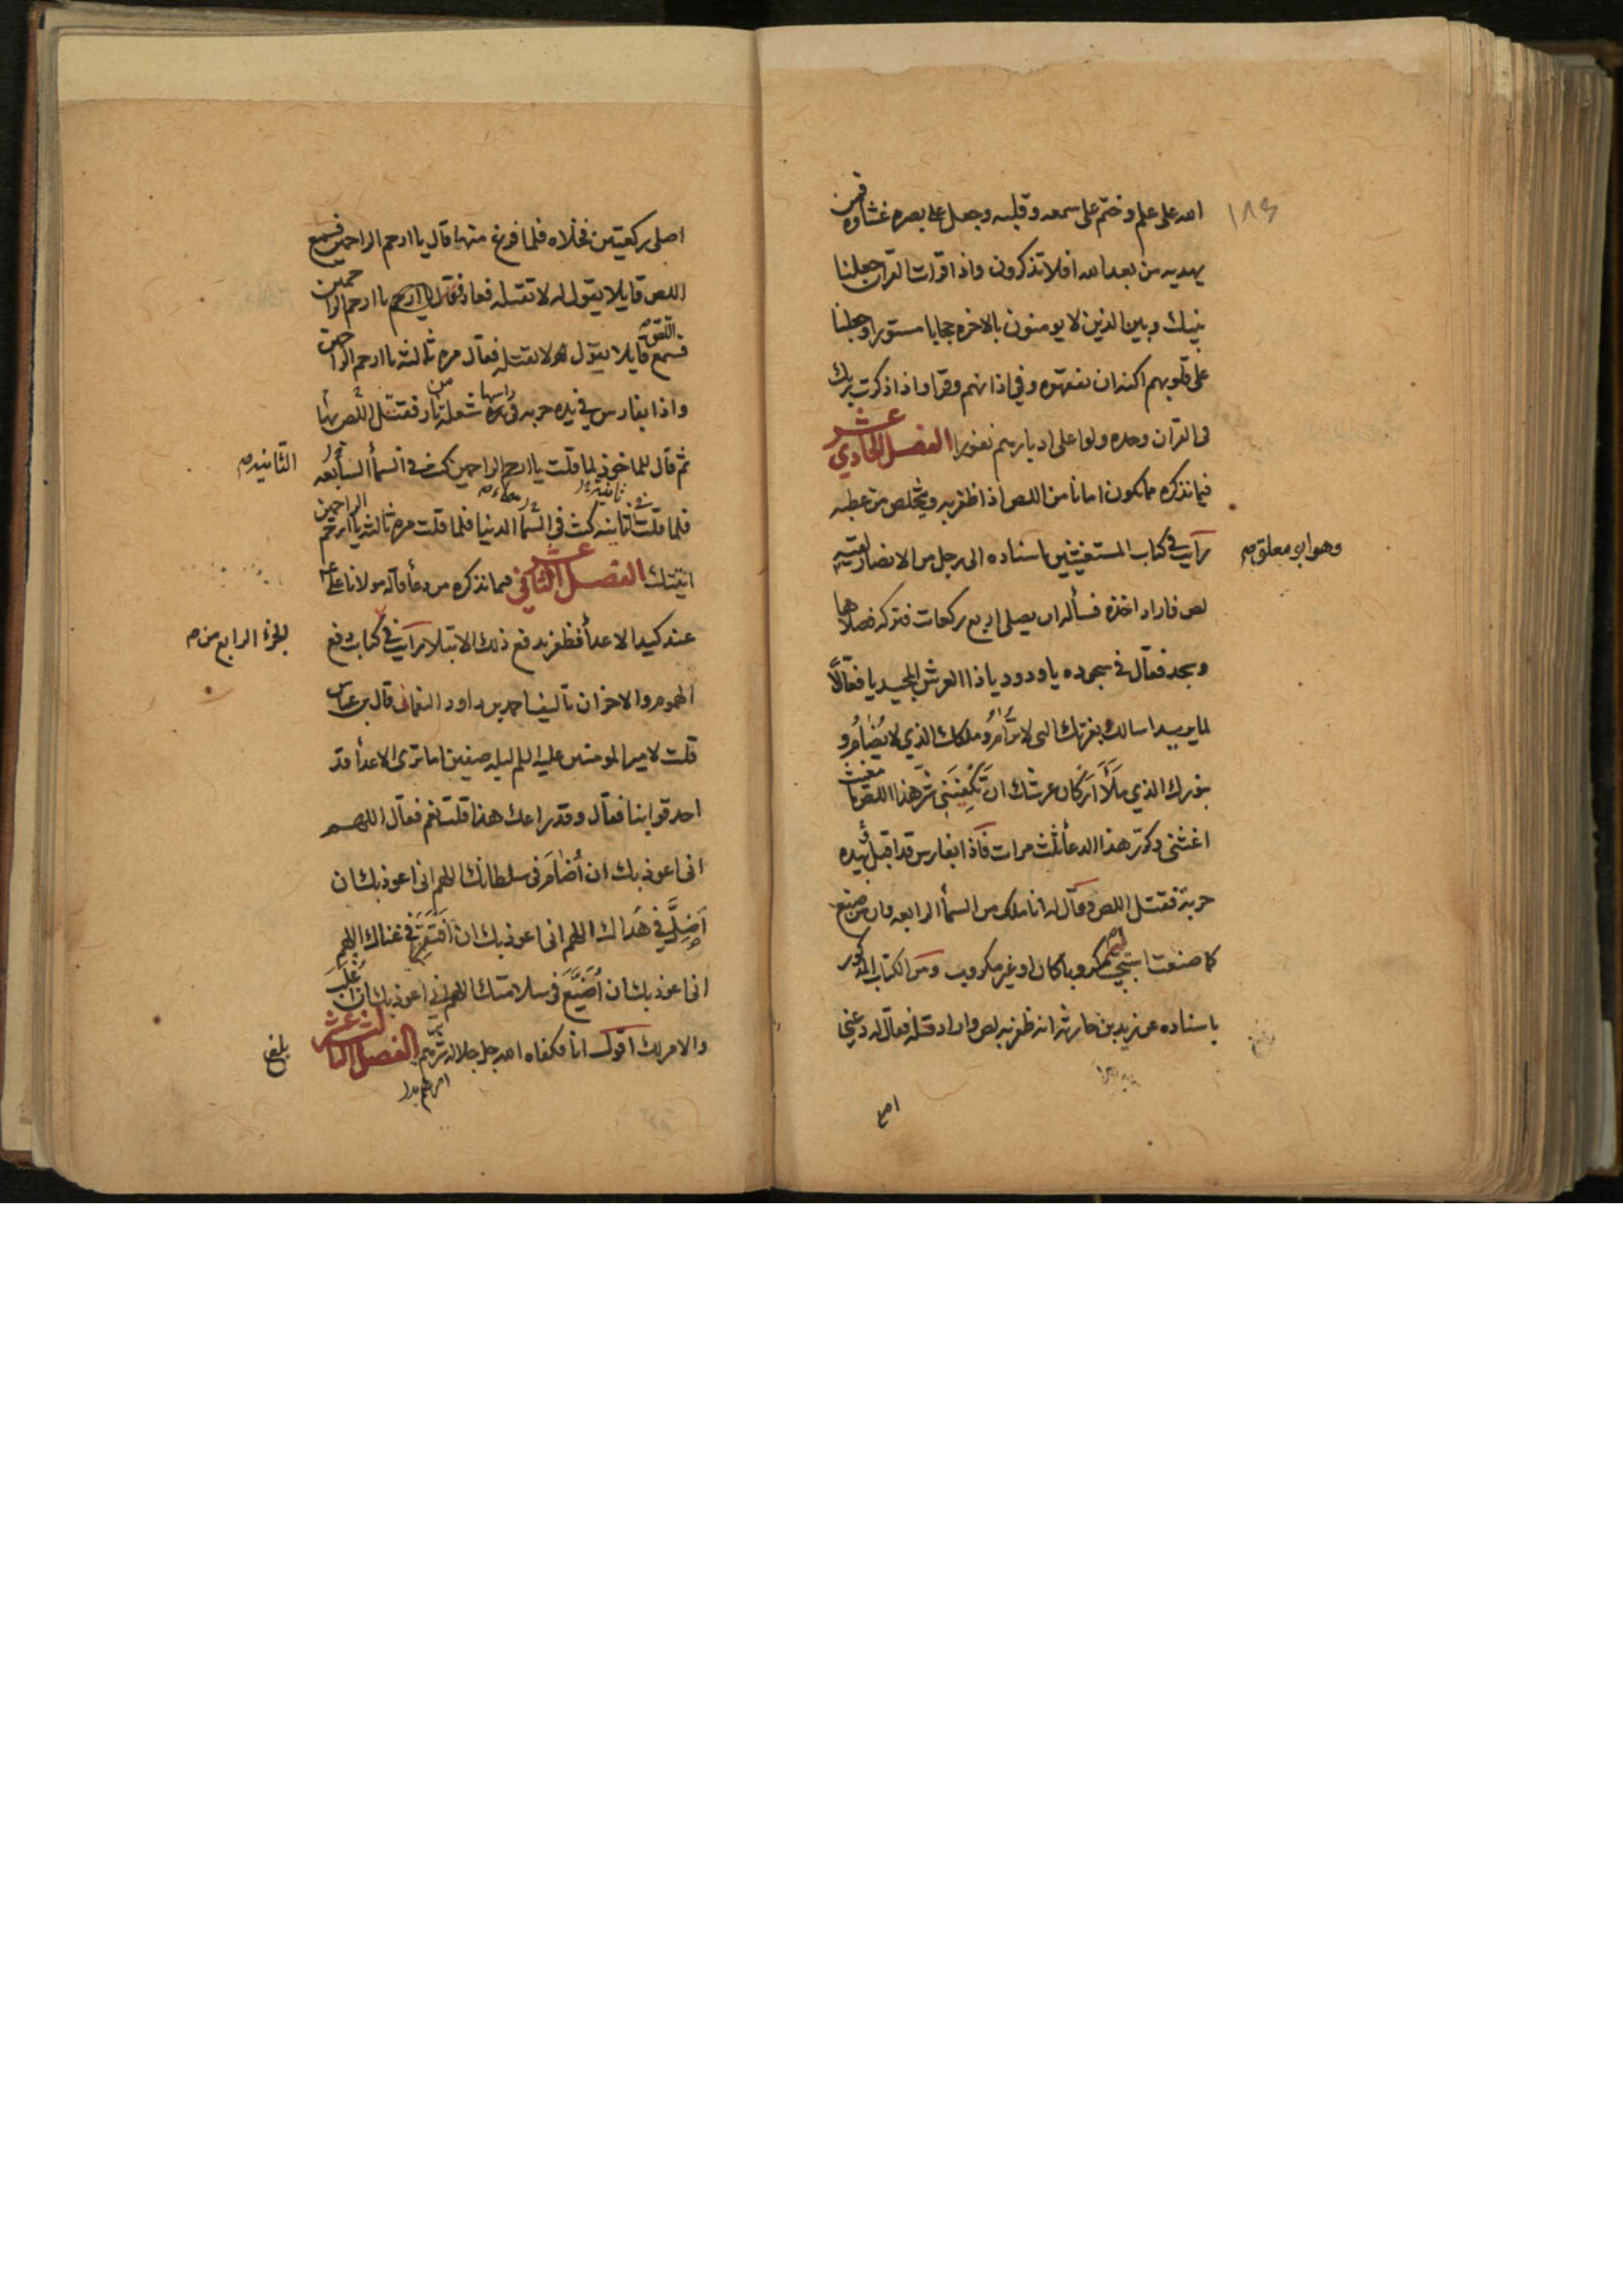 ١٨٤
الله على علم وختم على سمعه وقلبه وجعل على بصره غشاوة فمن
يهديه من بعد الله افلا تذكرون واذا قرات القران جعلنا
بينك وبين الذين لا يومنون بالاخره حجابا مستورا وجعلنا
على قلوبهم اكنه ان يفقهوه وفي اذانهم وقرا واذا ذكرت ربك
في القران وحده ولوا على ادبارهم نفورا الفصل الحادي عشر
فيما نذكره مما يكون امانا من اللص اذا ظفر به ويتخلص من عطبه
رأيت في كتاب المستغيثين باسناده الى رجل من الانصار لقيه
وهو ابو معلق صح
لص فاراد اخذه فسأله ان يصلى اربع ركعات فتركه فصلاها
وسجد فقال في سجوده يا ودود يا ذا العرش المجيد يا فعّالًا
لما يريد اسالك بعزتك التى لا تُرامُ وملكك الذي لا يُضامُ و
بنورك الذي ملَأَ اركان عرشك ان تكفِيَني شرّ هذا اللص يا مغيث
اغثنى وكرّر هذا الدعأ ثلث مرات فاذا بفارس قد اقبل بيده
حربة فقتل اللص وقال له انا ملك من السمأ الرابعه وان من صنع
كما صنعت استجيب له مكروبا كان او غير مكروب ومن الكتاب المذكور
باسناده عن زيد بن حارثه انه ظفر به لص واراد قتله فقال له دعني
اصلي
اصلى ركعتين فخلاه فلما فرغ منها قال يا ارحم الراحمين فسمع
اللص قايلا يقول له لا تقتله فعاد فقال يا ارحم يا ارحم الراحمين
فسمع اللص قايلا يقول لا تقتله فقال مره ثالثه يا ارحم الراحمين
واذا بفارس في يده حربه في راسها شعلة من نار فقتل اللص بها
ثم قال للماخوذ لما قلت يا ارحم الراحمين كنت في السمأ السابعه
الثانيه صح
فلما قلت ثانيه كنت في السمأ الدنيا فلما قلت مره ثالثه يا ارحم الراحمين
اتيتك الفصل الثاني عشر فيما نذكره من دعأ قاله مولانا علي ع
عند كيد الاعدأ فظفر بدفع ذلك الابتلا رأيت في كتاب دفع
الجزء الرابع من صح
الهموم والاحزان تأليف احمد بن داود النعمانى قال بن عباس
قلت لامير المومنين عليه السلم ليله صفين اما ترى الاعدأ قد
احدقوا بنا فقال وقد راعك هذا قلت نعم فقال اللهم
انى اعوذ بك ان أُضامَ فى سلطانك اللهم انى اعوذ بك ان
أضِلَّ في هُداك اللهم انى اعوذ بك ان افتقِرَ في غناك اللهم
انى اعوذ بك ان أُضَيَّعَ فى سلامتك اللهم اني اعوذ بك ان أُغلَبَ
والامر لك اقول انا فكفاه الله جل جلاله شرهم الفصل الثالث عشر
بلغ